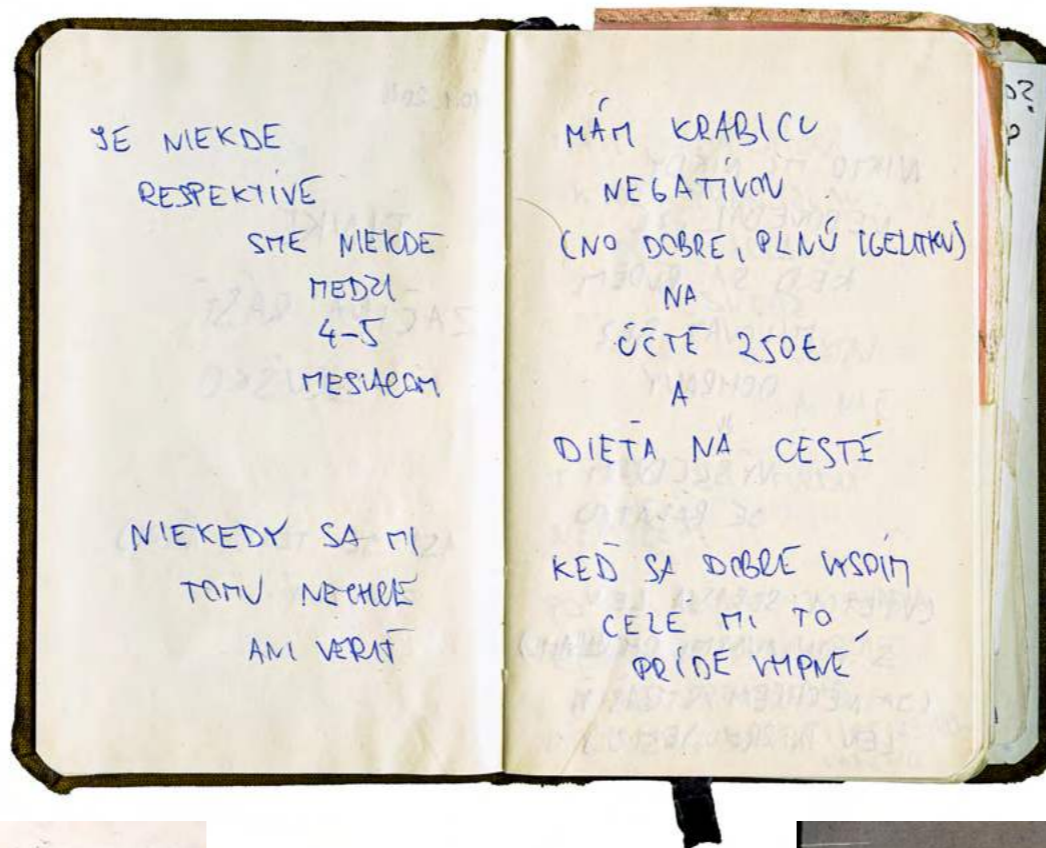 JE NIEKDE
RESPEKTÍVE
SME NIEKDE
MEDZI
4-5
MESIACOM
NIEKEDY SA MI
TOMU NECHCE
ANI VERIŤ
MÁM KRABICU
NEGATÍVOV
(NO DOBRE, PLNÚ IGELITKU)
NA
ÚČTE 250€
A
DIEŤA NA CESTE
KEĎ SA DOBRE VYSPÍM
CELÉ MI TO
PRÍDE VTIPNÉ